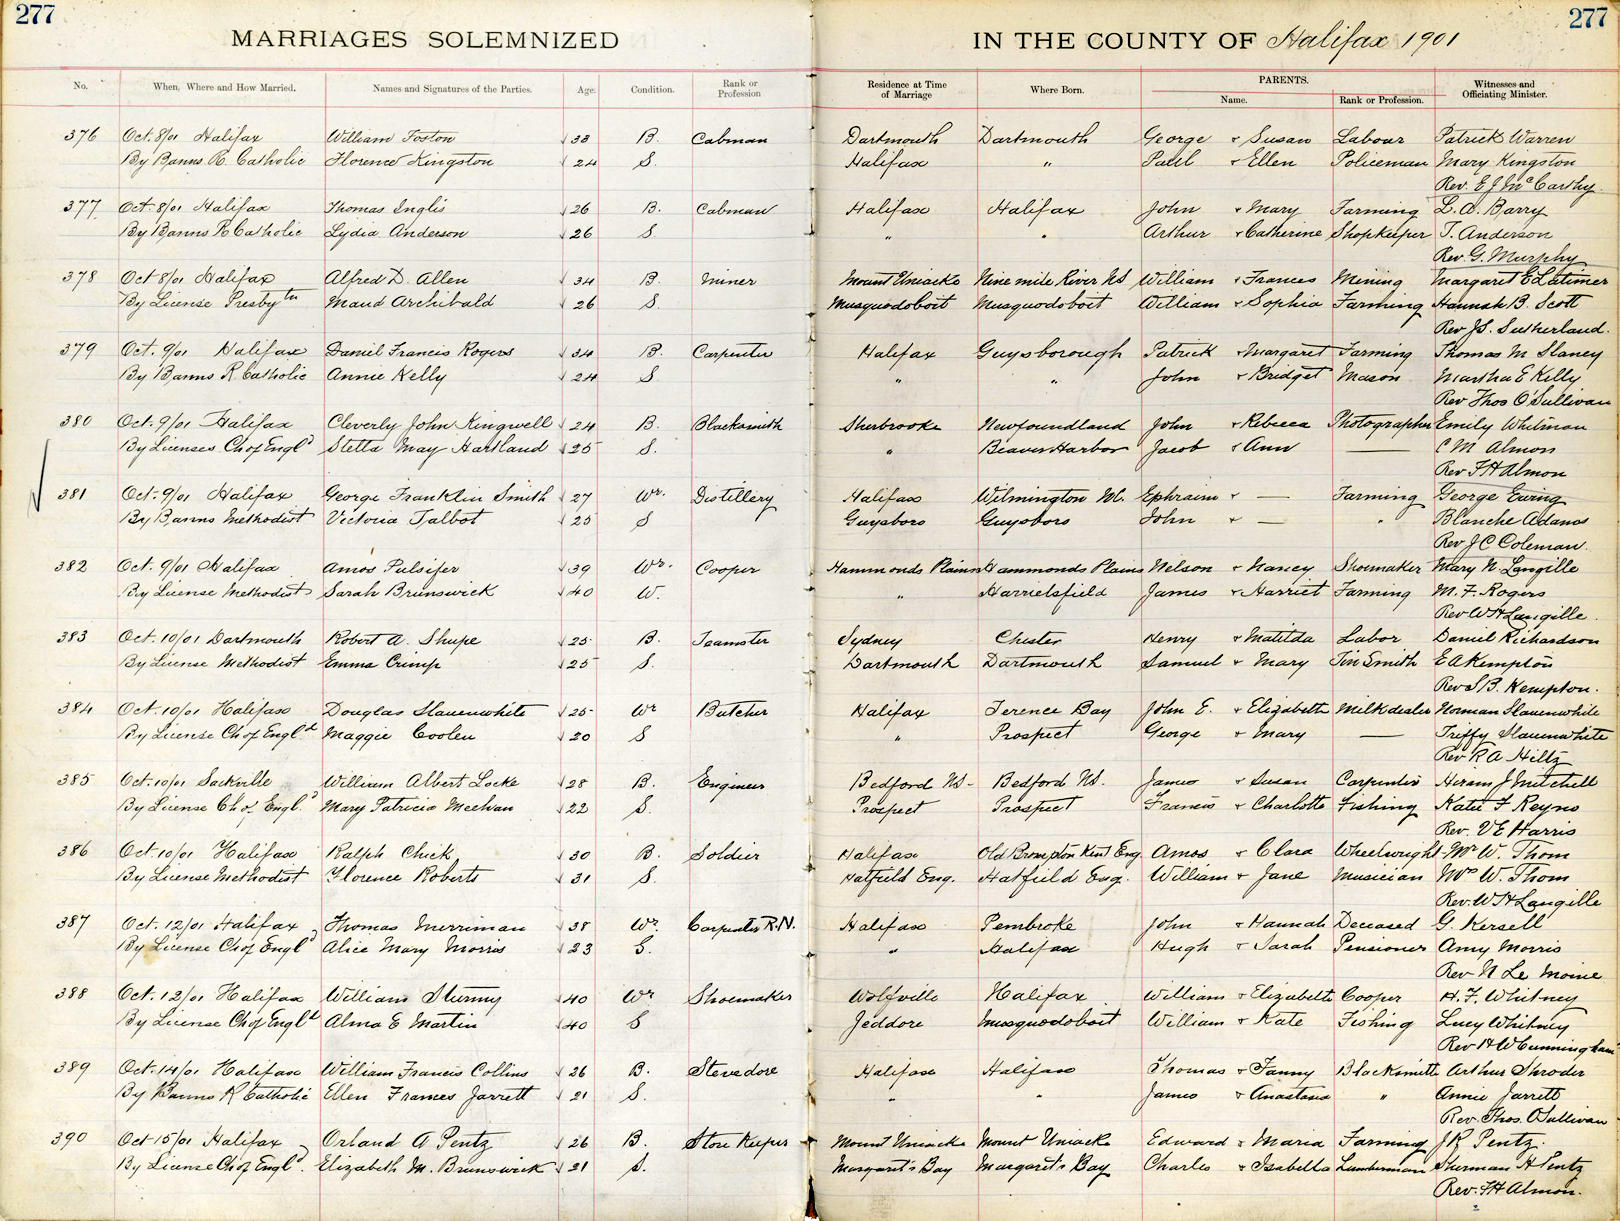 277
277
MARRIAGES SOLEMNIZED IN THE COUNTY OF Halifax 1901
No. When, Where and How Married. Names and Signatures of the Parties. Age. Condition. Rank or Profession Residence at Time of Marriage Where Born. PARENTS. Name. Rank or Profession. Witnesses and Officiating Minister.
376 Oct. 8/01 Halifax William Foston 33 B. Cabman Dartmouth Dartmouth George & Susan Labour Patrick Warren
By Banns R. Catholic Florence Kingston 24 S. Halifax " & Ellen Policeman Mary Kingston
Rev. E J McCarthy.
377 Oct. 8/01 Halifax Thomas Inglis 26 B. Cabman Halifax Halifax John & Mary Farming L. A. Barry
By Banns R Catholic Lydia Anderson 26 S. " " Arthur & Catherine Shopkeeper T. Anderson
Rev G. Murphy
378 Oct 8/01 Halifax Alfred D. Allen 34 B. Miner Mount Uniacke Nine mile River NS William & Frances Mining Margaret E Latimer
By License Presbytn Maud Archibald 26 S. Musquodoboit Musquodoboit William & Sophia Farming Hannah B. Scott
Rev J S. Sutherland.
379 Oct. 9/01 Halifax Daniel Francis Rogers 34 B. Carpenter Halifax Guysborough Patrick & Margaret Farming Thomas M Slaney
By Banns R Catholic Annie Kelly 24 S. " " John & Bridget Mason Martha E Kelly
Rev Thos O'Sullivan
380 Oct. 9/01 Halifax Cleverly John Kingwell 24 B. Blacksmith Sherbrooke Newfoundland John & Rebecca Photographer Emily Whitman
By Licenses Ch of Engld Stella May Hartland 25 S. " Beaver Harbor Jacob & Ann — C M Almon
Rev F H Almon
381 Oct. 9/01 Halifax George Franklin Smith 27 Wr. Distillery Halifax Wilmington Ephraim & — Farming George Ewing
By Banns Methodist Victoria Talbot 25 S Guysboro Guysboro John & — " Blanche Adams
Rev J C Coleman.
382 Oct. 9/01 Halifax Amos Pulsifer 39 Wr. Cooper Hammonds Plains Hammonds Plains Nelson & Nancy Shoemaker Mary N. Langille
By License Methodist Sarah Brunswick 40 W. " Harrietsfield James & Harriet Farming M. F. Rogers
Rev W H Langille.
383 Oct. 10/01 Dartmouth Robert A. Shupe 25 B. Teamster Sydney Chester Henry & Matilda Labor Daniel Richardson
By License Methodist Emma Crimp 25 S. Dartmouth Dartmouth Samuel & Mary Tin Smith E A Kempton
Rev S B. Kempton.
384 Oct. 10/01 Halifax Douglas Slauenwhite 25 Wr Butcher Halifax Terence Bay John E. & Elizabeth Milkdealer Norman Slauenwhite
By License Ch of Engld Maggie Coolen 20 S " Prospect George & Mary — Triffy Slauenwhite
Rev R A Hiltz
385 Oct. 10/01 Sackville William Albert Locke 28 B. Engineer Bedford NS- Bedford NS. James & Susan Carpenter Hiram J Mitchell
By License Ch of Engld Mary Patricia Meehan 22 S. Prospect Prospect Francis & Charlotte Fishing Katie F Reyno
Rev. V E Harris
386 Oct. 10/01 Halifax Ralph Chick 30 B. Soldier Halifax Old Brompton Kent Eng. Amos & Clara Wheelwright Mr W. Thom
By License Methodist Florence Roberts 31 S. Hatfield Eng. Hatfield Eng. William & Jane Musician Mrs W. Thom
Rev. W H Langille
387 Oct. 12/01 Halifax Thomas Merriman 38 Wr. Carpenter R.N. Halifax Pembroke John & Hannah Deceased G. Kersell
By License Ch of Engld Alice Mary Morris 23 S. " Halifax Hugh & Sarah Pensioner Amy Morris
Rev N Le Moine
388 Oct. 12/01 Halifax William Stumny 40 Wr Shoemaker Wolfville Halifax William & Elizabeth Cooper H. F. Whitney
By License Ch of Engld Alma E Martin 40 S Jeddore Musquodoboit William & Kate Fishing Lucy Whitney
Rev H W Cunningham
389 Oct. 14/01 Halifax William Francis Collins 26 B. Stevedore Halifax Halifax Thomas & Fanny Blacksmith Arthur Shroder
By Banns R Catholic Ellen Frances Jarrett 21 S. " " James & Anastasia " Annie Jarrett
Rev. Thos. O'Sullivan
390 Oct 15/01 Halifax Orland A Pentz 26 B. Store Keeper Mount Uniacke Mount Uniacke Edward & Maria Farming J R Pentz.
By License Ch of Engld. Elizabeth M. Brunswick 21 S. Margaret's Bay Margaret's Bay Charles & Isabella Lumberman Sherman H Pentz
Rev. F H Almon.